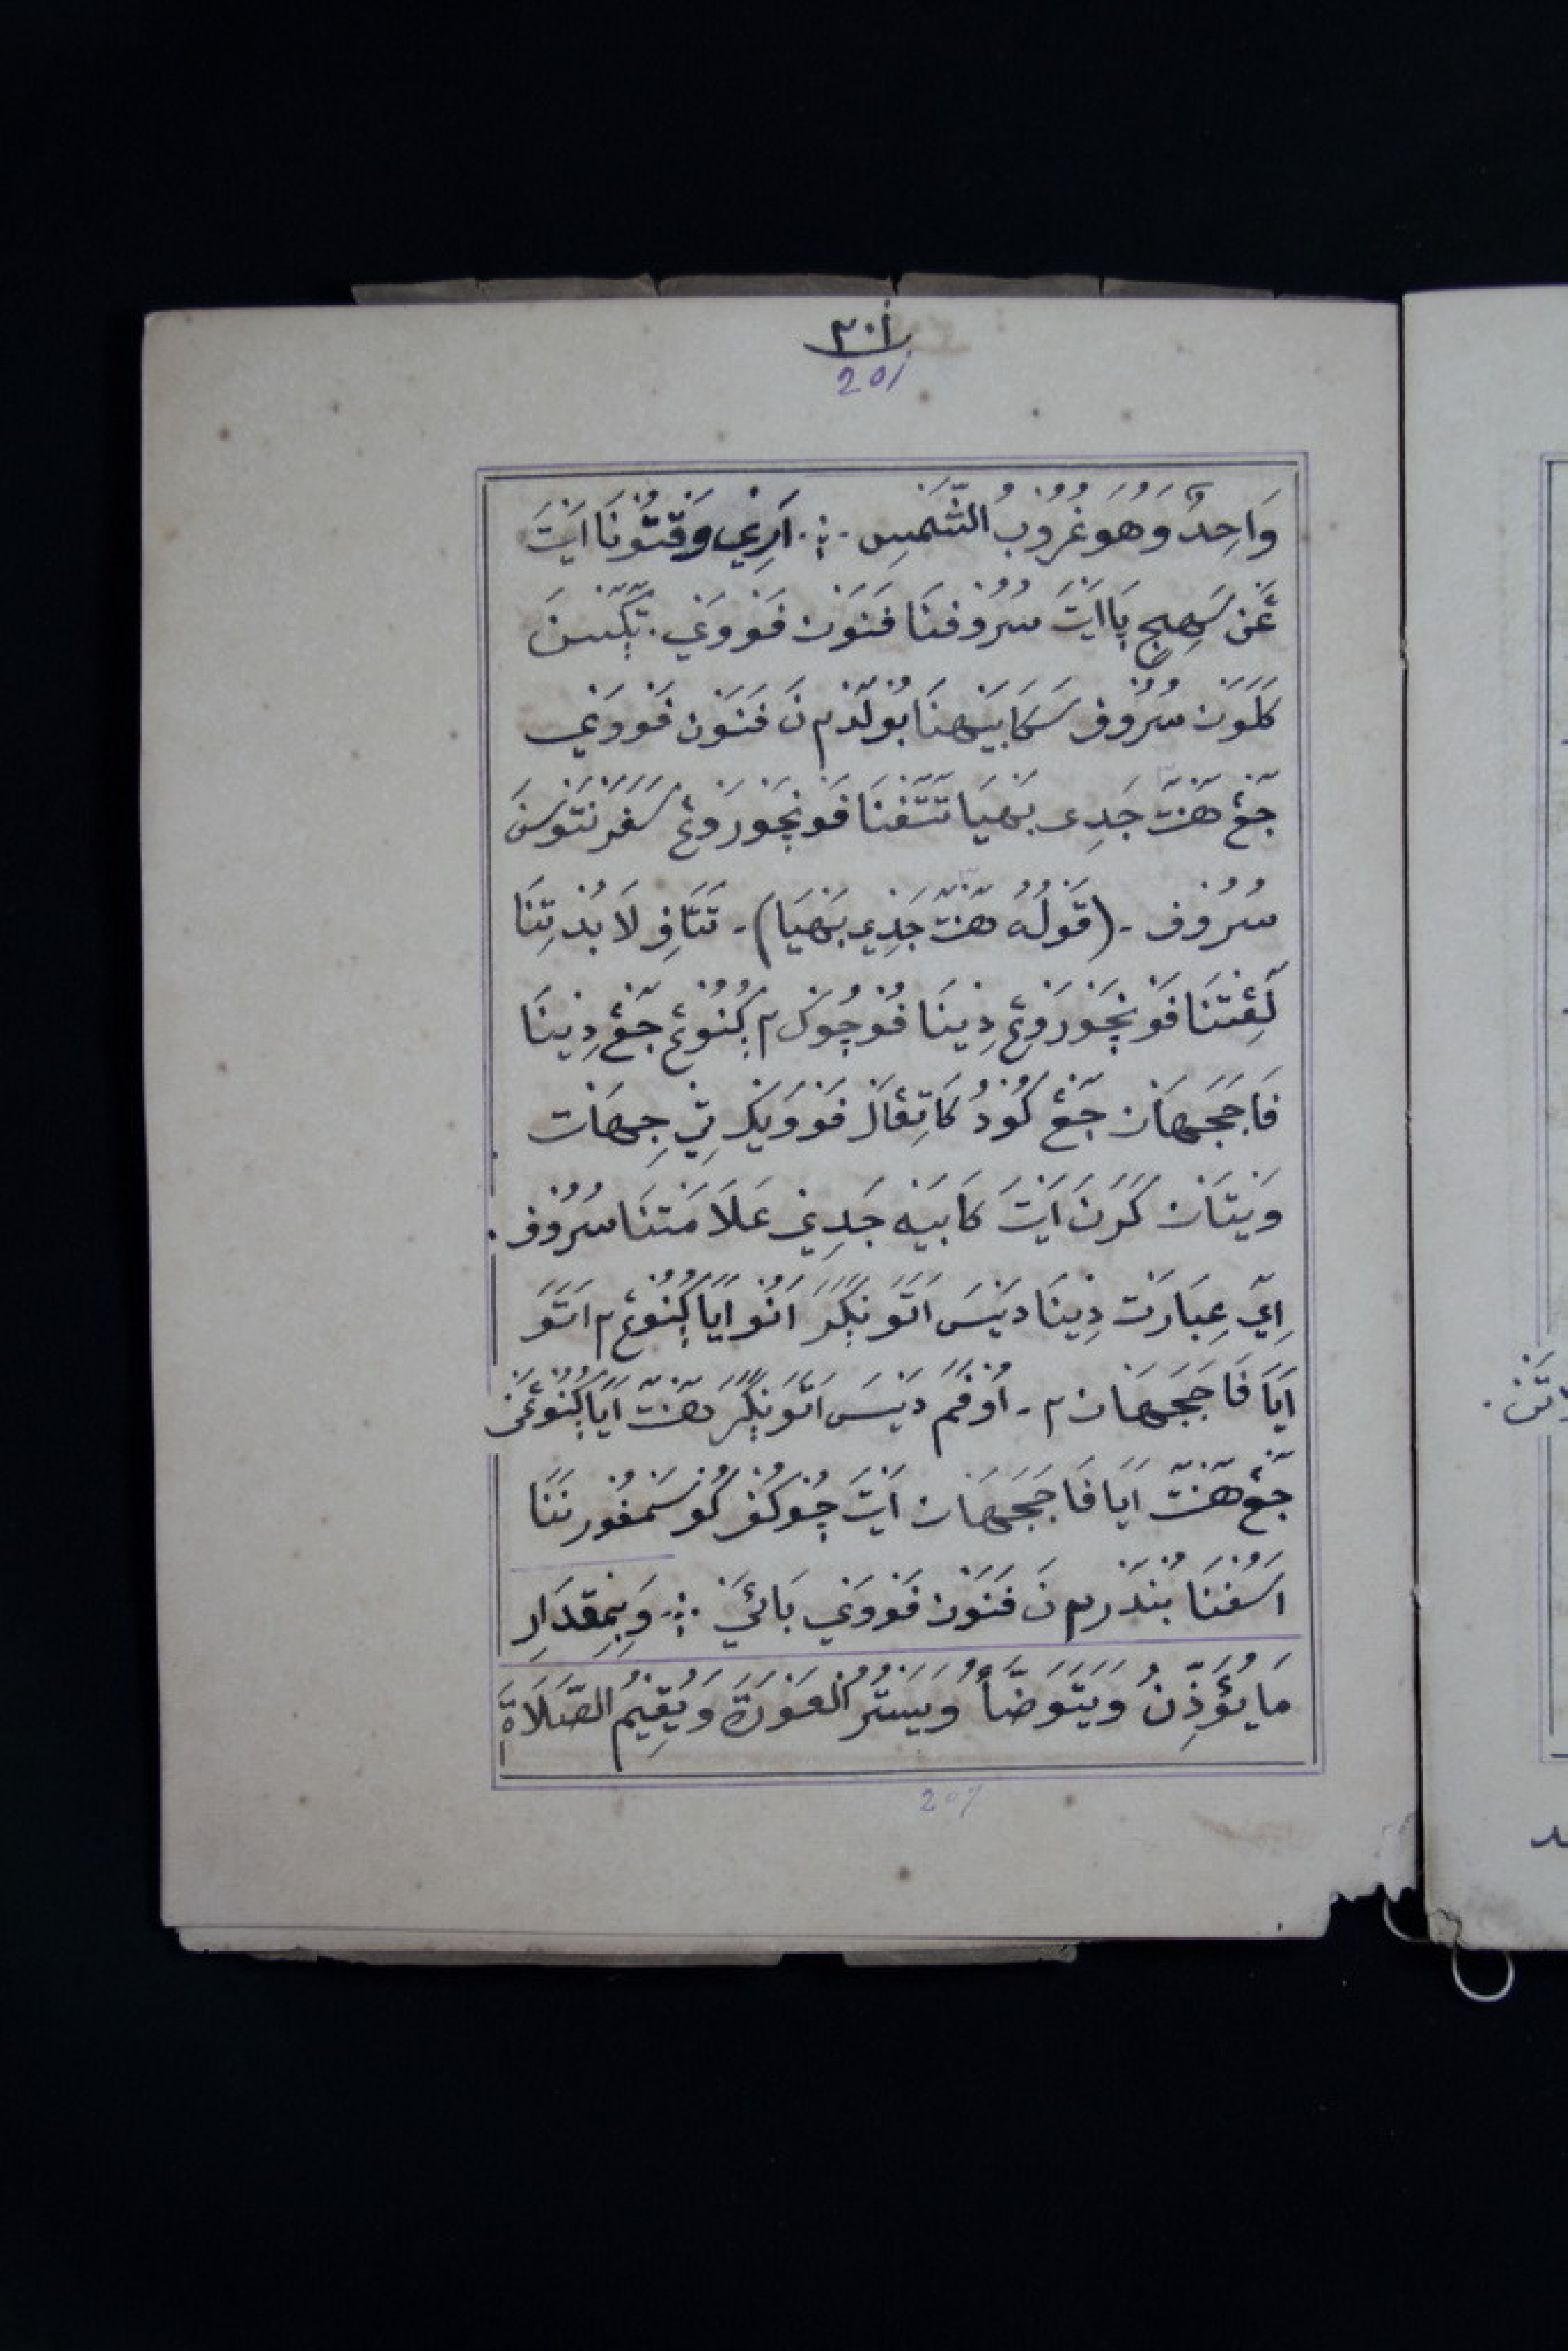 ٢٠١
201
وَاحِدٌ وَهُوَ غُرُوْبُ الشَّمْسِ ۞ اَرِيْ وَقْتُوْنَا اَيْتَ
عَن سَهِجِ بَااَيْتَ سُرُوْفْنَا فَنَوْن فَوْوَنِي. تَكَّسَن
كَلَوَن سُرُوْف سَكَابَيْهنَا بُوْلَدْ م نَ فَنَوْن فَوْوَنِي
جَغْ هَنْتَ جَدِى بَهِيَا تَتَّفْنَا فَوْنْچَوْرَوْغ سَفَرْنَتَوْسَن
سُرُوْف - (قَوْلُهُ هَنْتَ جَدِى بَهِيَا) - تَتَافِ لَا بُدْ تِتْنَا
لَغِتْنَا فَوْنْچَوْرَوْغِ دِيْنَا فُوْچُوْك م كُنُوْغ جَغْ دِيْنَا
فَاجَجَهَان جَغْ كُوْدُ كَاتِغَالْ فَوْوَيْكَ تِيْ جِهَات
وَيْتَان كَرَنَ اَيْتَ كَابَيْه جَدِيْ عَلَامَتْنَا سُرُوْف.
اِيْ عِبَارَت دِيْنَا دَيْسَ اَتَوْ نَكَرَ اَنُوْ اَيَا كُنُوْغ م اَتَوَ
اَيَا فَاجَجَهَان م - اُوْفَمَ دَيْسَ اَتَوْ نَكَرَ هَنْتَ اَيَا كُنُوْغَن
جَغْ هَنْتَ اَيَا فَاجَجَهَان اَيْتَ چُوْكُفْ كُوْ سَمْفُوْرْنَنَا
اَسُفْنَا بُنْدَرْ م نَ فَنَوْن فَوْوَنِي بَائَيْ ۞ وَبِمِقْدَارِ
مَا يُؤَذِّنُ وَيَتَوَضَّأُ وَيَسْتُرُ الْعَوْرَةَ وَيُقِيْمُ الصَّلَاةَ
207